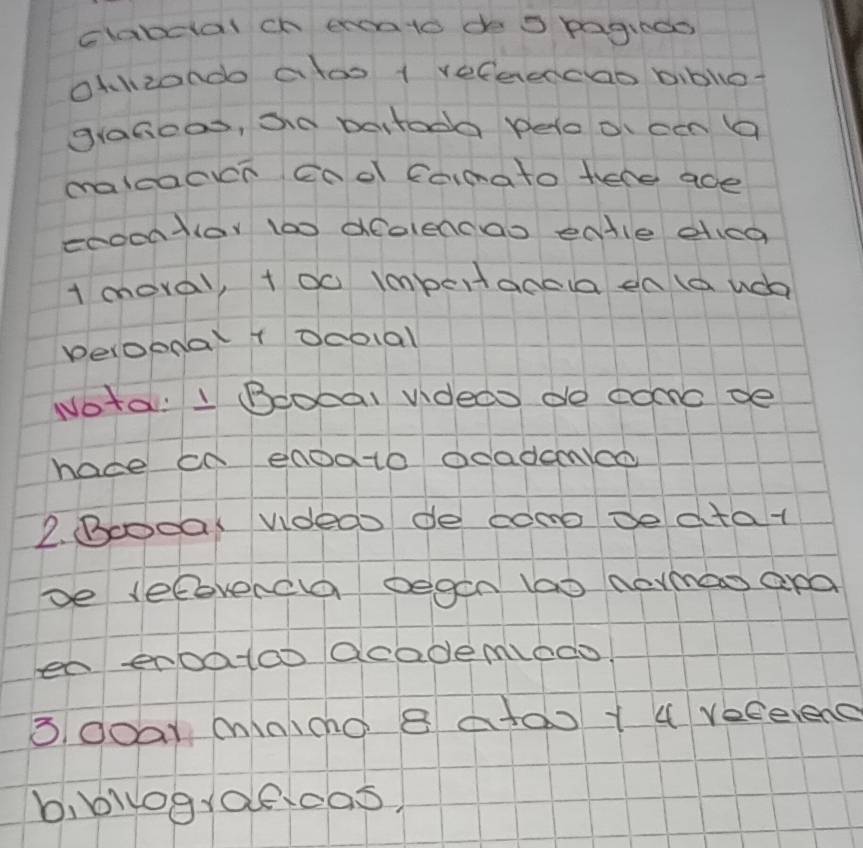 elaborar un ensayo de 5 paginas
utilizando citas y referencias biblio-
graficas, sin portada pero si con la
marcación en el formato tiene que
encontrar las diferencias entre etica
y moral, y su importancia en la vida
personal y social
Nota: 1 Buscar videos de como se
hace un ensayo academico
2. Buscar videos de como se cita y
se referencia segun las normas apa
en ensayos academicos.
3. usar minimo 8 citas y 4 referenc
bibliograficas.